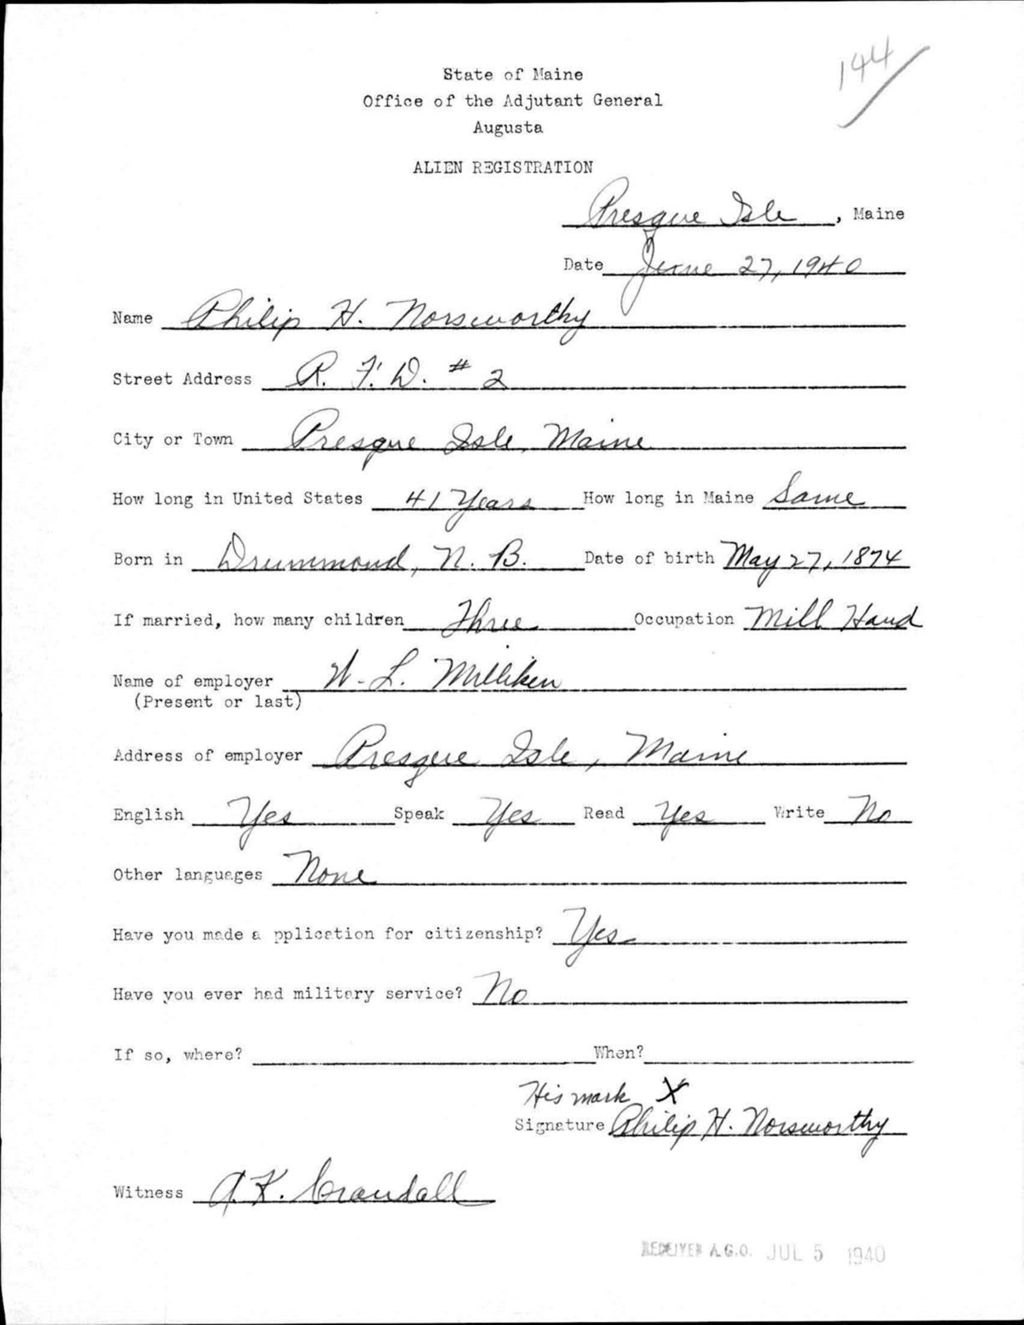 144
State of Maine
Office of the Adjutant General
Augusta
ALIEN REGISTRATION
Presque Isle, Maine
Date June 27, 1940
Name Philip H. Norsworthy
Street Address R. F. D. # 2
City or Town Presque Isle, Maine
How long in United States 41 Years How long in Maine Same
Born in Drummond, N. B. Date of birth May 27, 1874
If married, how many children Three Occupation Mill Hand
Name of employer W. L. Milliken
(Present or last)
Address of employer Presque Isle, Maine
English Yes Speak Yes Read Yes Write No
Other languages None
Have you made a pplication for citizenship? Yes
Have you ever had military service? No
If so, where? When?
His mark X
Signature Philip H. Norsworthy
Witness A. K. Crandall
A.G.O. JUL 5 1940